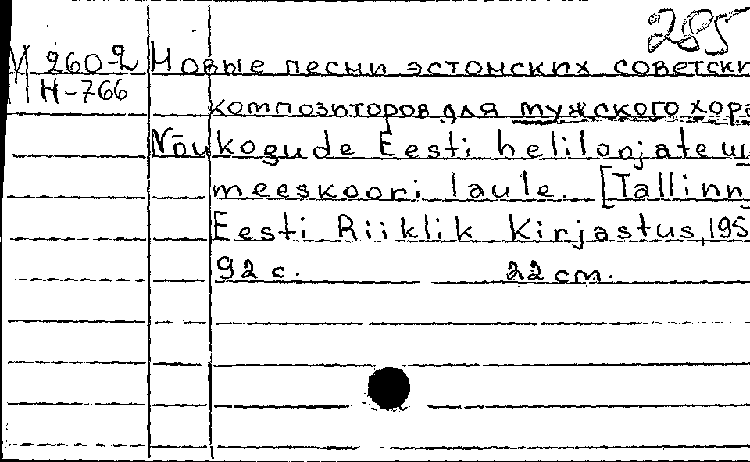 285
М 260-2 Новые песни эстонских советски
Н-766
композиторов для мужского хора
Nõukogude Eesti heliloojate u
meeskoori laule. [Tallinn,
Eesti Riiklik Kirjastus, 195
92 с. 22 cm.